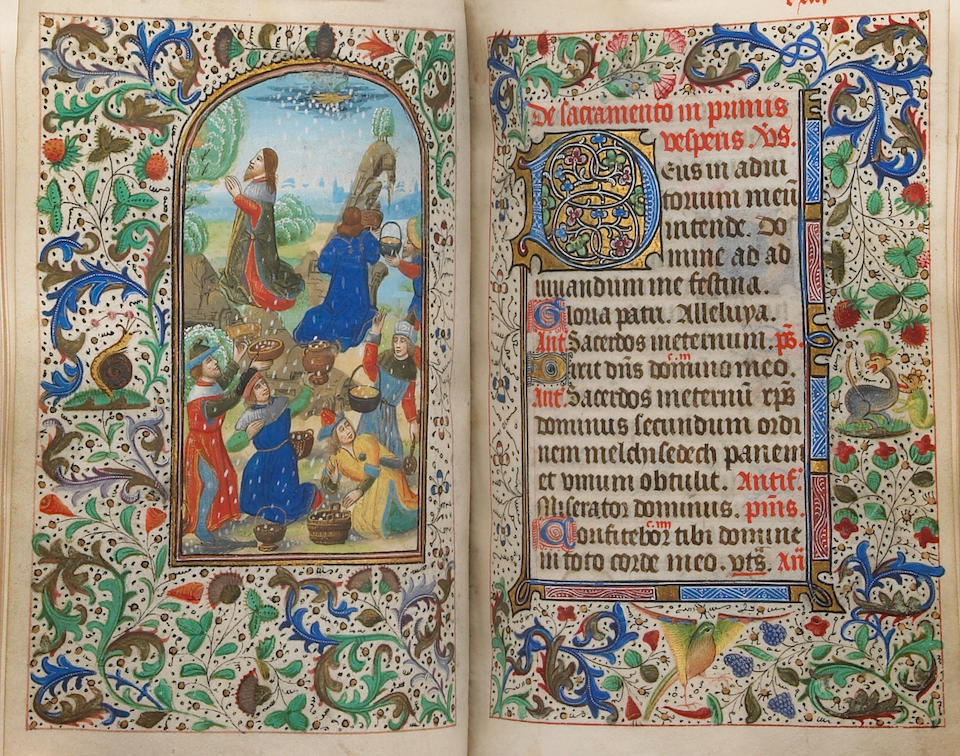 De sacramento in primis
vesperis. V̄s.
Deus in adiu
torium meū
intende. Do
mine ad ad
iuuandum me festina.
Gloria patri. Alleluya.
Ant Sacerdos ineternum. p̄s.
c.iii
Dixit dn̄s domino meo.
Ant. Sacerdos ineternū xp̄s
dominus secundum ordi
nem melchisedech panem
et vinum obtulit. Antif.
Miserator dominus. p̄mis.
c.iiii
Confitebor tibi domine
in toto corde meo. vts̄. An̄